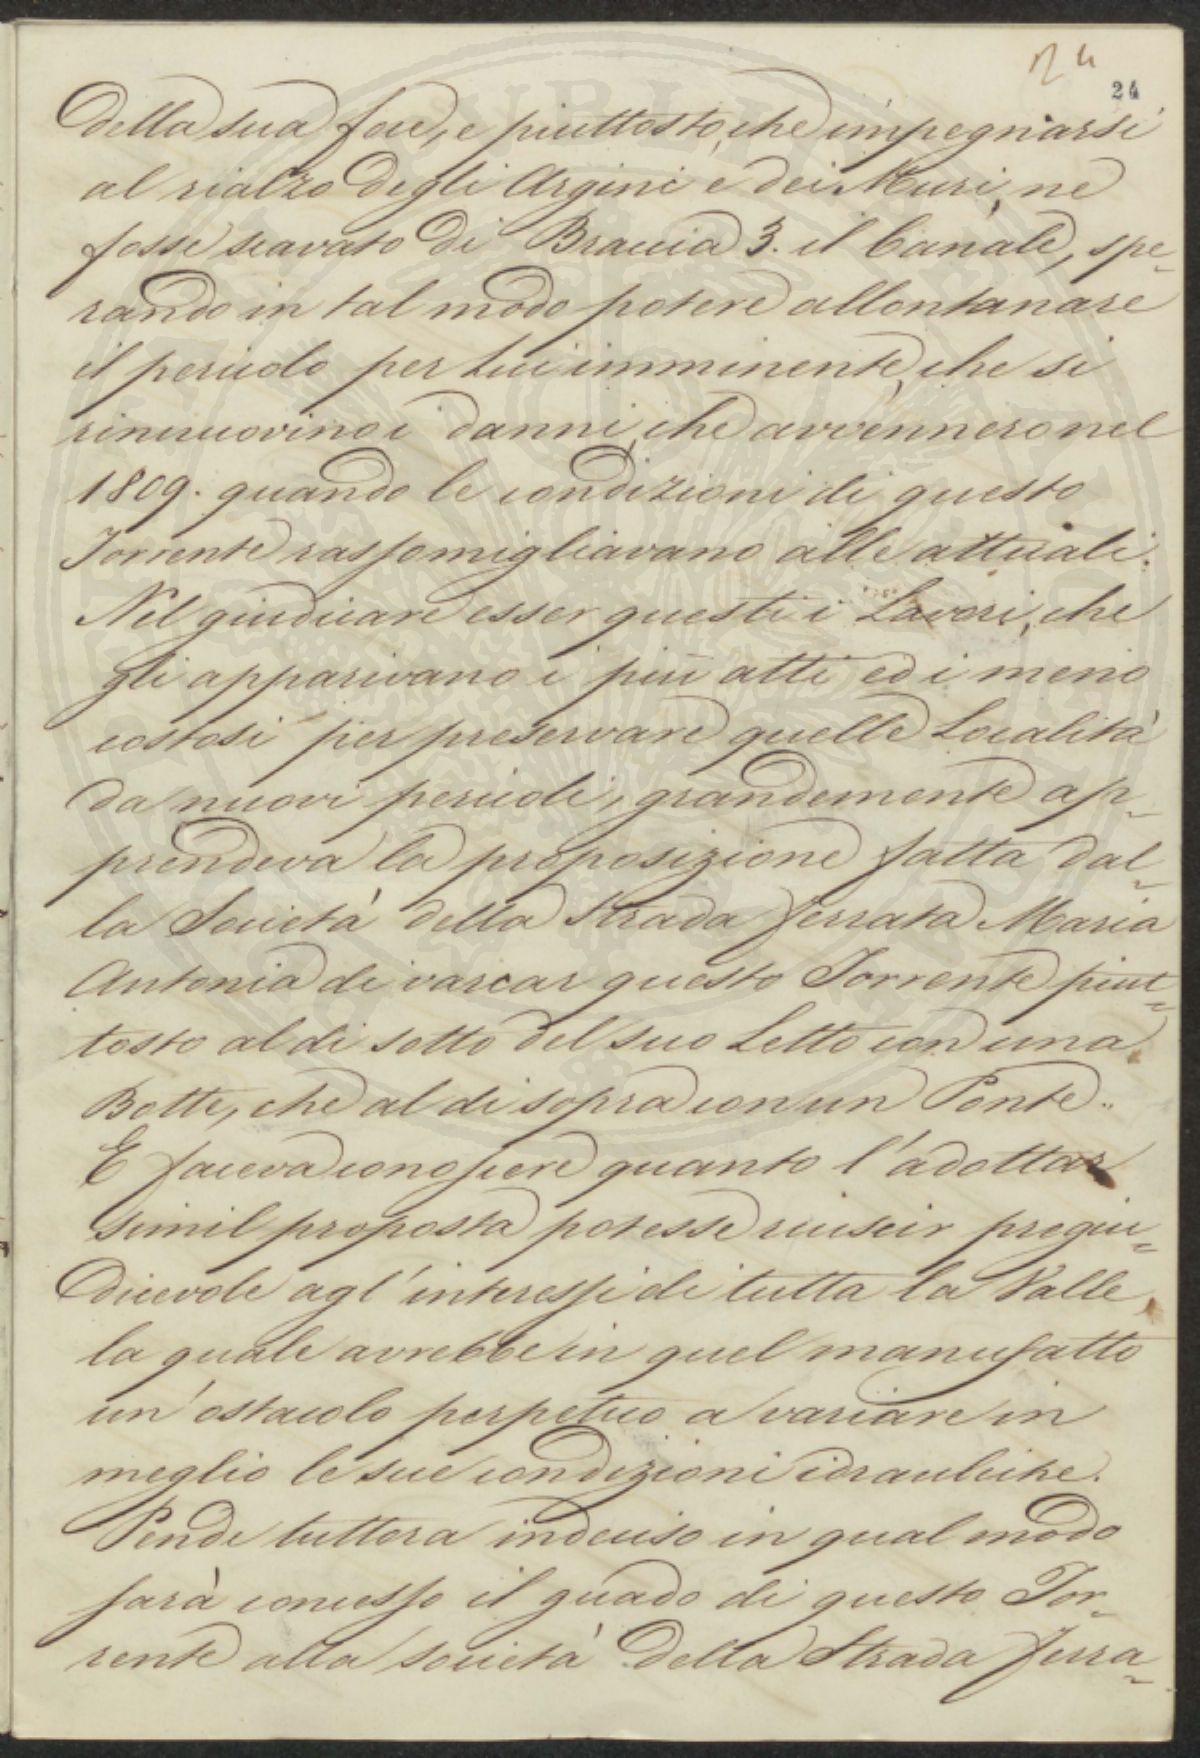 24
24
della sua foce, e piuttosto, che impegnarsi
al rialzo degli Argini e dei Muri, ne
fosse scavato di Braccia 3. il Canale, spe-
rando in tal modo potere allontanare
il pericolo per Lui imminente, che si
rinnuovino i danni, che avvennero nel
1809. quando le condizioni di questo
Torrente rassomigliavano alle attuali.
Nel giudicare esser questi i Lavori, che
gli apparivano i più atti ed i meno
costosi per preservare quelle Località
da nuovi pericoli, grandemente ap-
prendeva la proposizione fatta dal-
la Società della Strada ferrata Maria
Antonia di varcar questo Torrente piut=
tosto al di sotto del suo Letto con una
Botte, che al di sopra con un Ponte..
E faceva conoscere quanto l'adottar
simil proposta potesse riuscir pregiu=
dicevole agl'interessi di tutta la Valle,
la quale avrebbe in quel manufatto
un'ostacolo perpetuo a variare in
meglio le sue condizioni idrauliche.
Pende tuttora indeciso in qual modo
sarà concesso il guado di questo Tor-
rente alla società della Strada ferra-